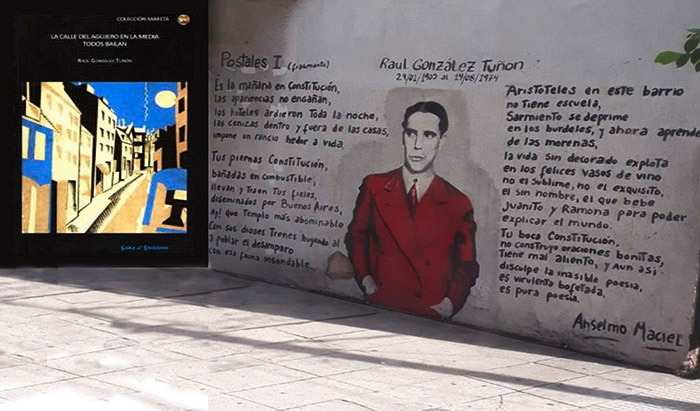 COLECCIÓN MARSTA
LA CALLE DEL AGUJERO EN LA MEDIA
TODOS BAILAN
RAÚL GONZÁLEZ TUÑÓN
Postales I (fragmento)
Es la mañana en Constitución,
las apariencias no engañan,
los hoteles ardieron toda la noche,
las cenizas dentro y fuera de las casas,
impone un rancio hedor a vida.
Tus piernas Constitución,
bañadas en combustible,
llevan y traen tus fieles,
diseminados por Buenos Aires,
Ay! que Templo más abominable
Con sus dioses Trenes huyendo al
a poblar el desamparo
con esa fauna insondable.
Raul González Tuñon
29/03/1905 al 14/08/1974
Aristoteles en este barrio
no tiene escuela,
Sarmiento se deprime
en los burdeles, y ahora aprende
de las morenas,
la vida sin decorado explota
en los felices vasos de vino
no el sublime, no el exquisito,
el sin nombre, el que bebe
Juanito y Ramona para poder
explicar el mundo.
Tu boca Constitución,
no construye oraciones bonitas,
Tiene mal aliento, y aun asi
disculpe la inasible poesia,
es virulenta bofetada,
es pura poesia.
Anselmo Maciel